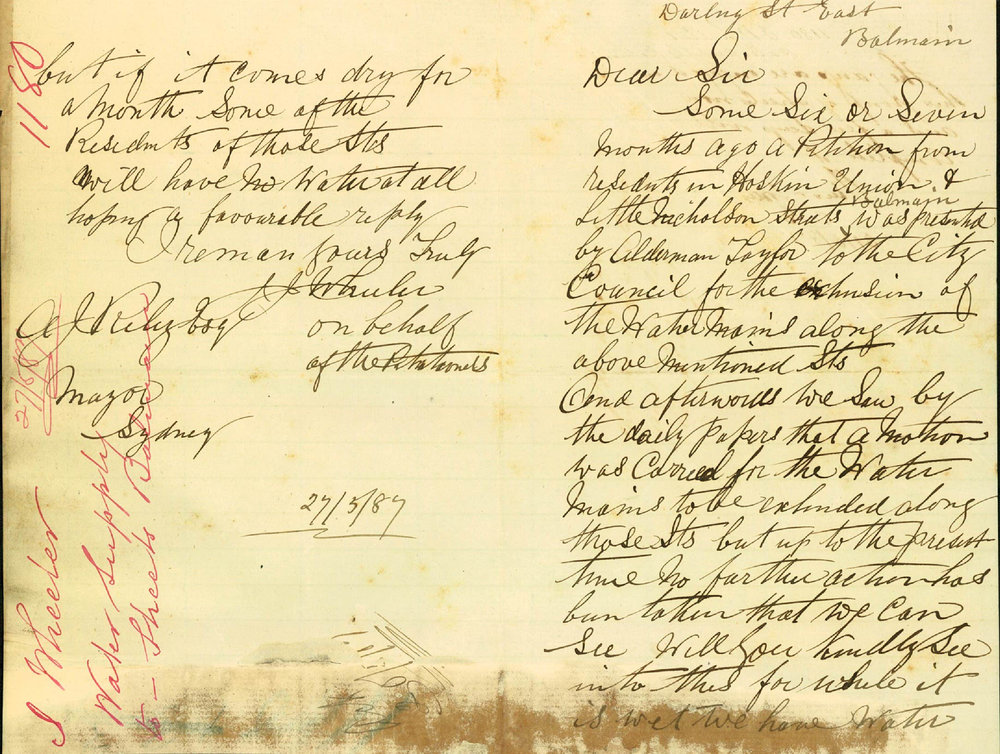 Darling St East
Balmain
Dear Sir
Some Six or Seven
Months ago a Petition from
residents in Hoskin Union &
Little Nicholson Streets Balmain was presented
by Alderman Taylor to the City
Council for the extension of
the Water Mains along the
above Mentioned Sts
and afterwards we Saw by
the daily Papers that a Motion
was Carried for the Water
Mains to be extended along
those Sts but up to the present
time No further action has
been taken that we can
See Will you kindly See
into this for while it
is wet we have Water
but if it comes dry for
a Month Some of the
Residents of those Sts
will have No Water at all
hoping a favourable reply
I remain yours Truly
J J Wheeler
on behalf
of the Petitioners
A J Riley Esq
Mayor
Sydney
27/5/87
1180
27/5/87
J Wheeler
Water Supply
to Streets Balmain